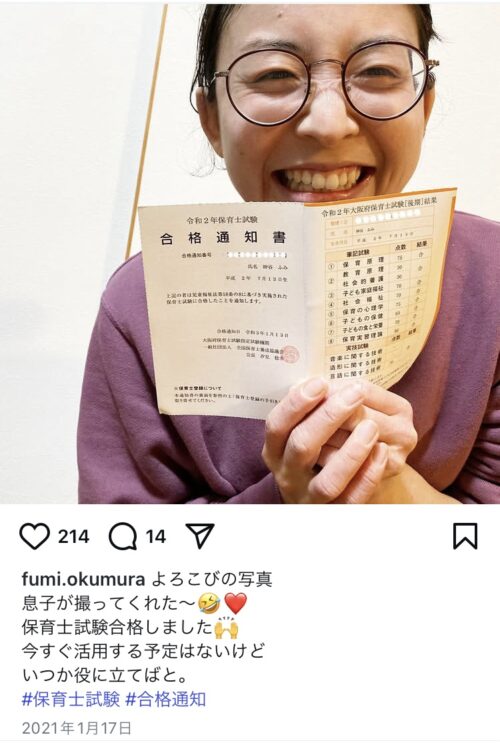 令和2年保育士試験
合格通知書
合格通知番号
氏名 神谷 ふみ
平成 2年 7月13日生
上記の者は児童福祉法第8条の8に基づき実施された
保育士試験に合格したことを通知します。
合格通知日 令和3年1月13日
大阪府保育士試験指定試験機関
一般社団法人 全国保育士養成協議会
※保育士登録について
令和2年大阪府保育士試験[後期]結果
筆記試験 点数 結果
① 保育原理
教育原理
② 社会的養護
③ 子ども家庭福祉
④ 社会福祉
⑤ 保育の心理学
⑥ 子どもの保健
⑦ 子どもの食と栄養
⑧ 保育実習理論
実技試験
音楽に関する技術
造形に関する技術
言語に関する技術
214 14
fumi.okumura よろこびの写真
息子が撮ってくれた〜🤣❤️
保育士試験合格しました🙌
今すぐ活用する予定はないけど
いつか役に立てばと。
#保育士試験 #合格通知
2021年1月17日